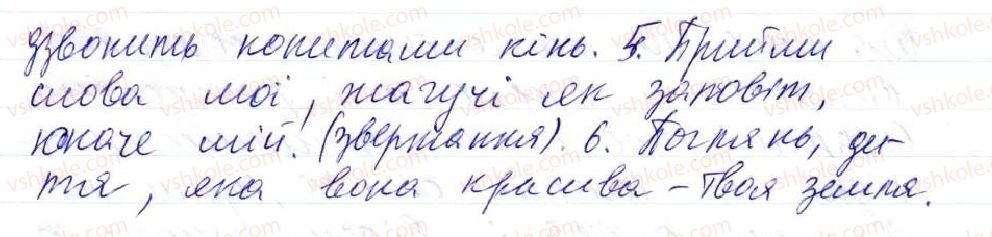 дзвонить копитами кінь. 5. Прийми
слова мої, жагучі як заповіт,
юначе мій. (звертання). 6. Поглянь, ди-
тя, яка вона красива - твоя земля.